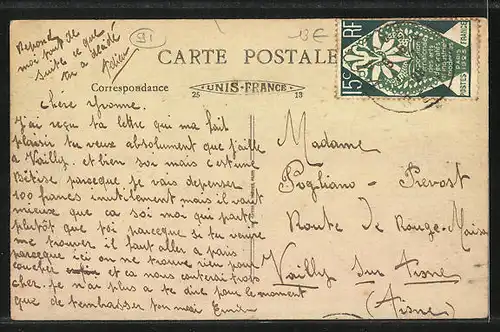 Repond
moi tout de
suite ce que
tu a décidé
91
13€
CARTE POSTALE
Correspondance
UNIS-FRANCE
25
13
15c RF
POSTES FRANCE
Chére Yvonne.
J'ai reçu ta lettre qui ma fait
plaisir tu veux absolument que j'aille
a Vailly. et bien soi mais c'est une
Bitise parceque je vais depenser
100 francs inutilement mais il vaut
mieux que ca soi moi qui parte
plutôt que toi parceque si tu venue
me trouver il faut aller a paris
parceque ici on ne trouve rien pour
coucher et ca nous couterai trop
cher. je n'ai plus a te dire pour le moment
que de t'embrasser ton moi Emile
Madame
Pogliano - Prevost
Route de Rouge-Maison
Vailly sur Aisne
(Aisne)